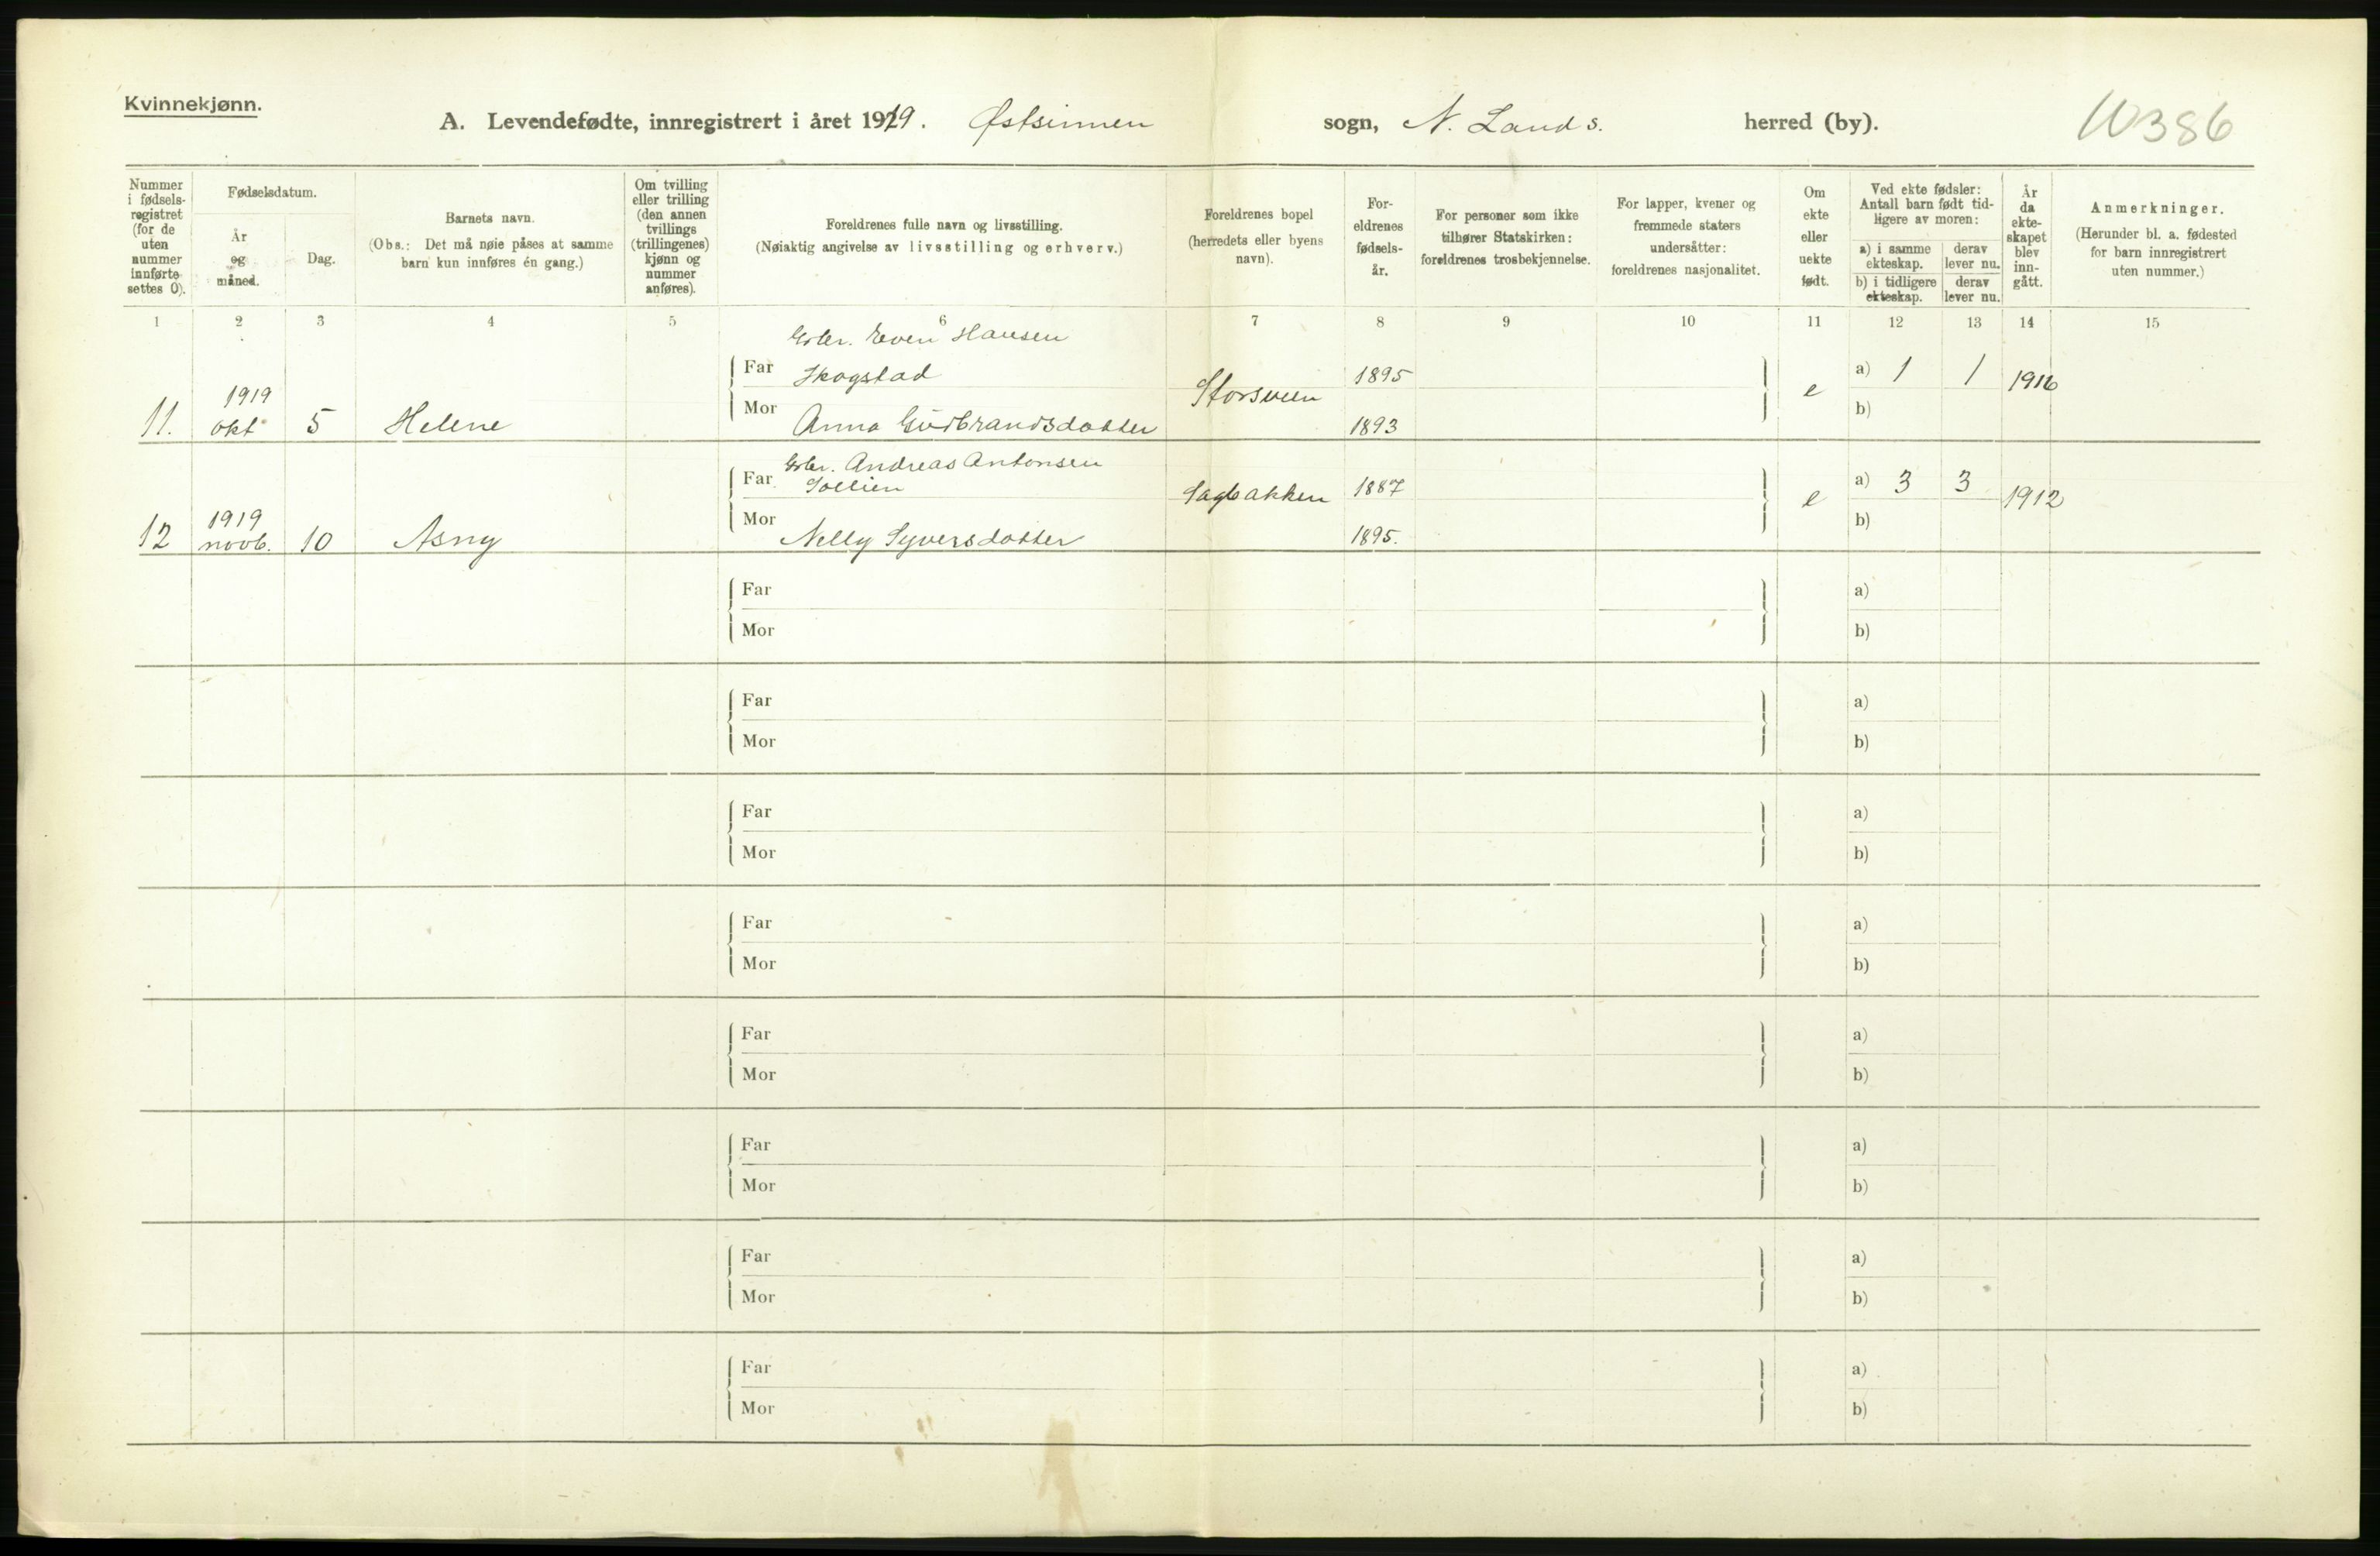 Kvinnekjønn.
A. Levendefødte, innregistrert i året 1919. Østsinnen sogn, N. Lands. herred (by).
10386
Nummer i fødsels-registret (for de uten nummer innførte settes 0).
Fødselsdatum.
År og måned.
Dag.
Barnets navn.
(Obs.: Det må nøie påses at samme barn kun innføres én gang.)
Om tvilling eller trilling (den annen tvillings (trillingenes) kjønn og nummer anføres).
Foreldrenes fulle navn og livsstilling.
(Nøiaktig angivelse av livsstilling og erhverv.)
Foreldrenes bopel (herredets eller byens navn).
For-eldrenes fødsels-år.
For personer som ikke tilhører Statskirken: foreldrenes trosbekjennelse.
For lapper, kvener og fremmede staters undersåtter: foreldrenes nasjonalitet.
Om ekte eller uekte født.
Ved ekte fødsler: Antall barn født tid-ligere av moren:
a) i samme ekteskap.
derav lever nu.
b) i tidligere ekteskap.
derav lever nu.
År da ekte-skapet blev inn-gått.
Anmerkninger.
(Herunder bl. a. fødested for barn innregistrert uten nummer.)
1 2 3 4 5 6 7 8 9 10 11 12 13 14 15
Even Hansen
Far Skogstad 1895 a) 1 1 1916
11. 1919 okt 5 Helene Storsveen e
Mor Anna Gudbrandsdatter 1893 b)
Andreas Antonsen
Far Sollien 1887 a) 3 3 1912
12 1919 novb. 10 Asny Sagbakken e
Mor Nelly Syversdatter 1895. b)
Far a)
Mor b)
Far a)
Mor b)
Far a)
Mor b)
Far a)
Mor b)
Far a)
Mor b)
Far a)
Mor b)
Far a)
Mor b)
Far a)
Mor b)